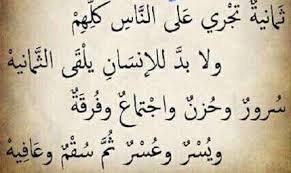 ثَمَانِيَةٌ تَجْرِي عَلَى النَّاسِ كُلِّهِمْ
ولا بدَّ للإنسَانِ يلْقَى الثَّمانيهْ
سُرورٌ وحُزنٌ واجْتماعٌ وفُرقَةٌ
ويُسْرٌ وعُسْرٌ ثُمَّ سقْمٌ وعَافِيهْ